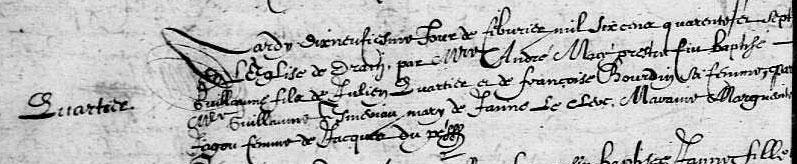 Mardy dixneufiesme Jour de febvrier mil six cens quarente sept
L'eglise de par Mre André Macé prestre fut Baptisé
Quartier Guillaume filz de Jullien Quartier et de françoise Bourdin sa femme, par
Mre Guillaume mary de Janne Le Clerc, Maraine Marguerite
femme de Jacques du
Baptisee Janne fille